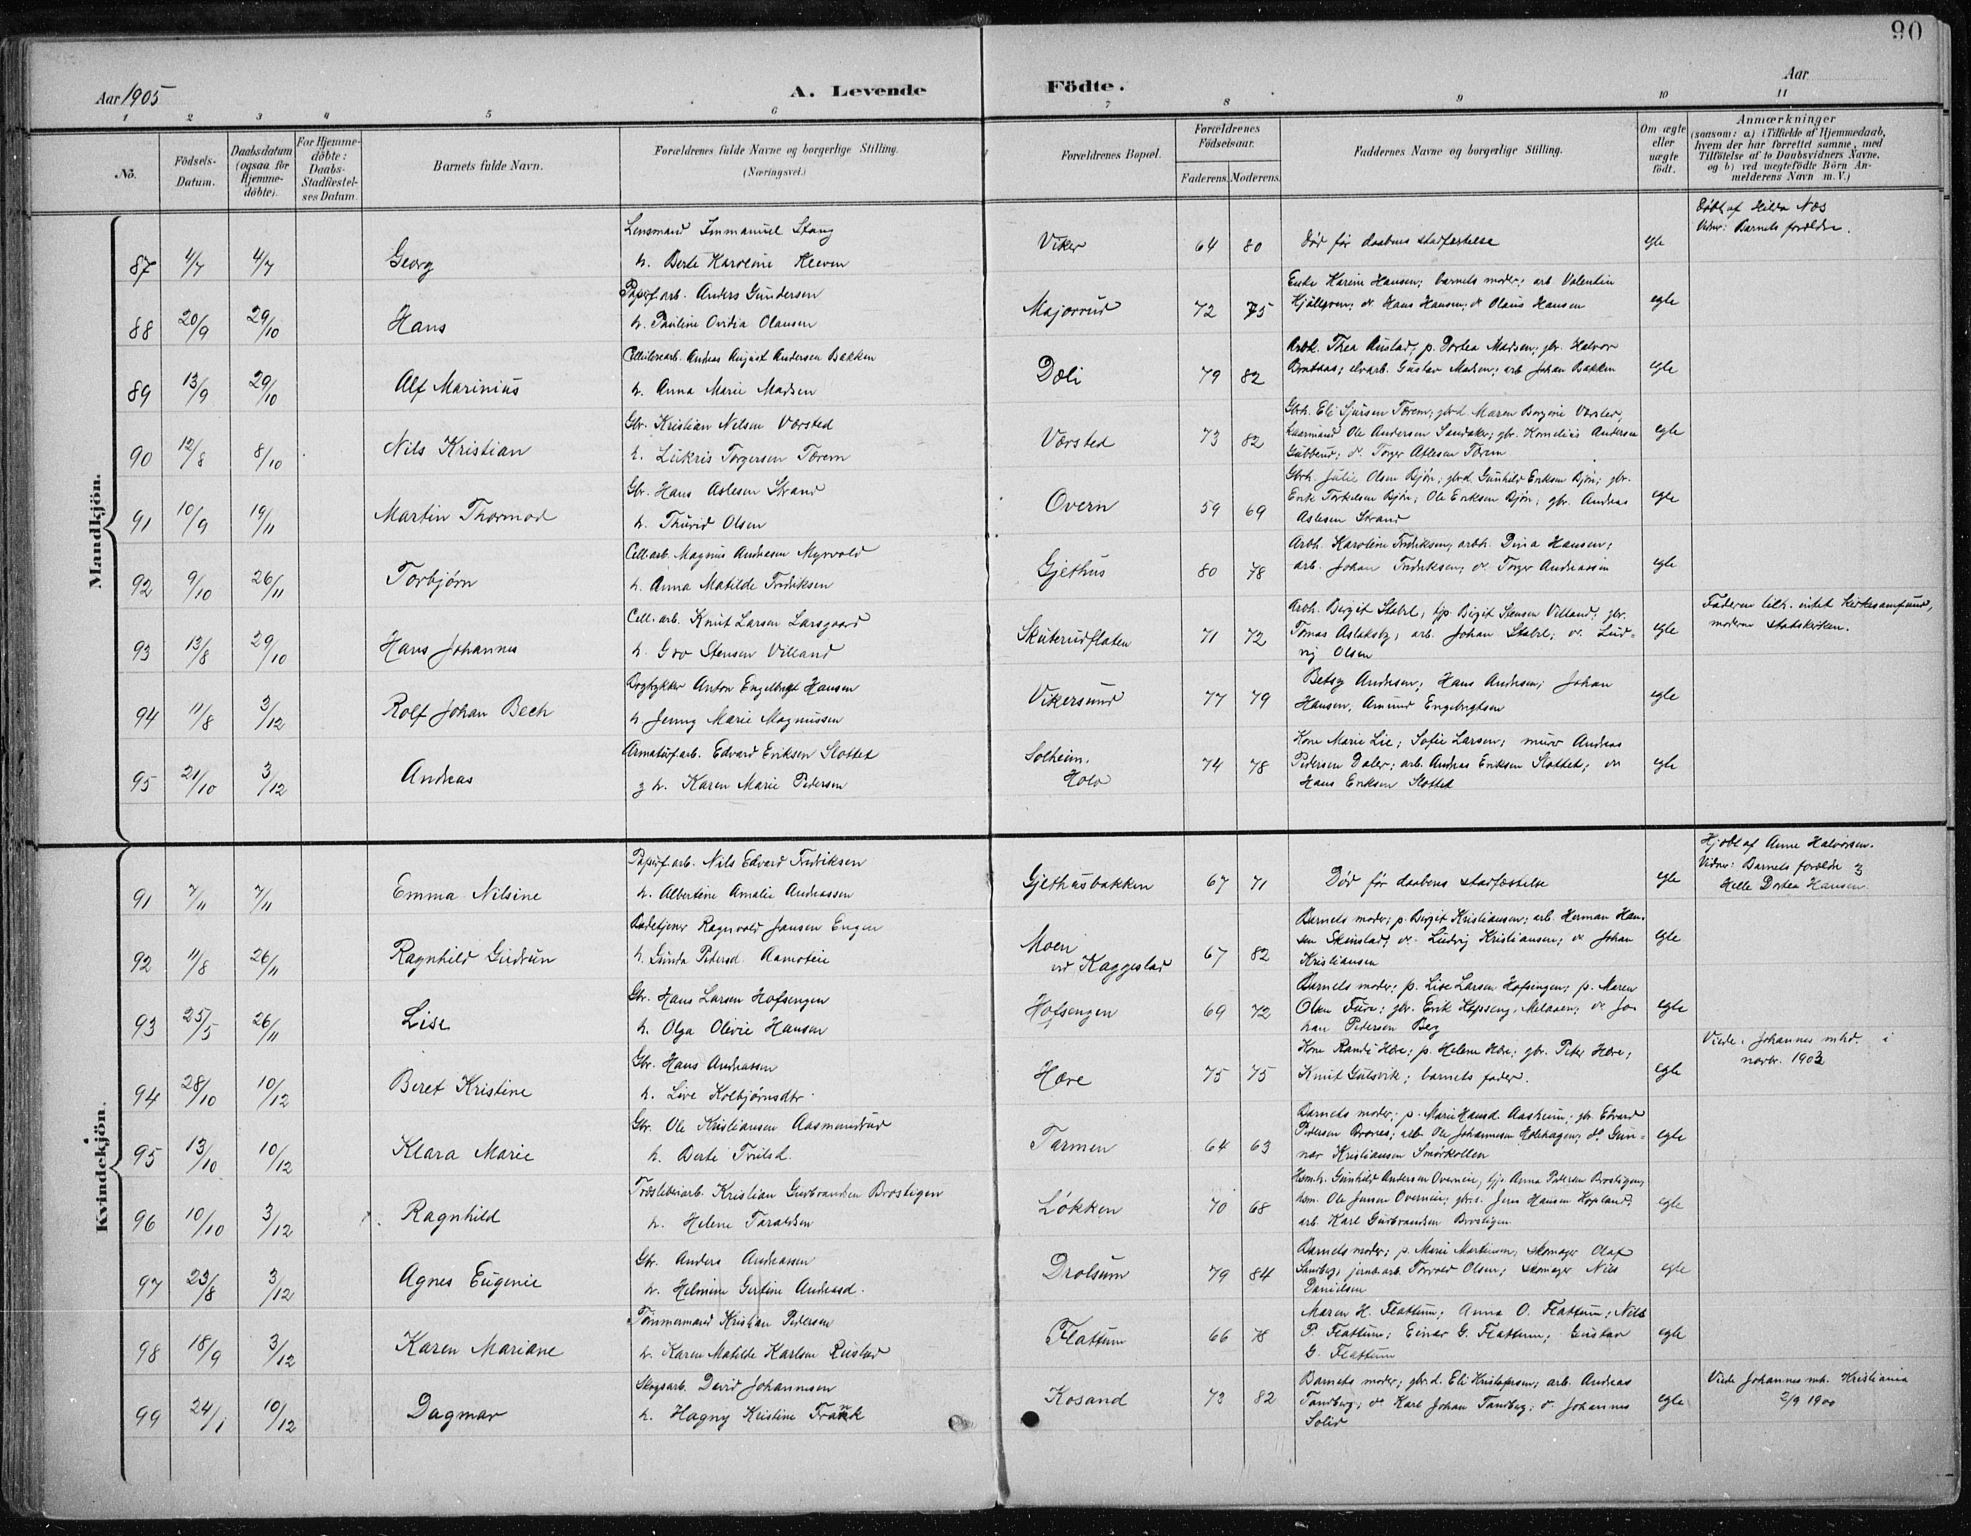 90
Aar 1905
A. Levende
Födte.
Aar
1 2 3 4 5 6 7 8 9 10 11
No.
Födsels-
Datum.
Daabsdatum
(ogsaa for
Hjemme-
döbte).
For Hjemme-
döbte:
Daabs-
Stadfæstel-
ses Datum.
Barnets fulde Navn.
Forældrenes fulde Navne og borgerlige Stilling.
(Næringsvei.)
Forældrenes Bopæl.
Forældrenes
Födselsaar.
Faderens. Moderens.
Faddernes Navne og borgerlige Stilling.
Om ægte
eller
uægte
födt.
Anmærkninger
(saasom: a.) i Tilfælde af Hjemmedaab,
hvem der har forrettet samme, med
Tilföielse af to Daabsvidners Navne,
og b) ved uægtefödte Börn An-
melderens Navn m. V.)
Mandkjön.
87 4/7 4/7 Georg
Lensmand Immanuel Stang
h. Berte Karoline Kleven
Viker 64 80 Død før daabens stadfæstelse egte
Døbt af Hilda Næs
Vidner: Barnets forældre.
88 20/9 29/10 Hans
Papirf.arb. Anders Gundersen
h. Pauline Ovidia Olausen
Majorrud 72 75
Enke Karine Hansen; barnets moder; arb Valentin
Hans Hansen; Olaus Hansen
egte
89 13/9 29/10 Alf Marinius
Cellulosearb. Andreas August Andersen Bakken
h. Anna Marie Madsen
Dæli 79 82
Arbk. Thea Austad, p. Dortea Madsen; gbr. Halvor
Gustav Madsen; arb Johan Bakken
egte
90 12/8 8/10 Nils Kristian
Gbr. Kristian Nilsen Værsted
h. Lukris Torgersen Tærem
Værsted 73 82
Gbrh. Eli Sjursen Tærem; gbrd. Maren
Ole Andersen Sandaker; gbr. Kornelius Andersen
Torger Atlesen Tærem
egte
91 10/9 19/11 Martin Thormod
Gbr. Hans Aslesen Strand
h. Thurid Olsen
Overn 59 69
Gbrh. Julie Olsen Bjøn; gbrd. Gunhild Eriksen Bjøn; gbr.
Erik Torkelsen Bjøn; Ole Eriksen Bjøn; gbr. Andreas
Aslesen Strand
egte
92 9/10 26/11 Torbjørn
Cell.arb. Magnus Andresen Myrvold
h. Anna Matilde Fredriksen
Gjethus 80 78
Arbh. Karoline Fredriksen; arbh. Dina Hansen;
arb. Johan Fredriksen; Torger Andreassen
egte
93 13/8 29/10 Hans Johannes
Cell. arb. Knut Larsen Larsgaard
h. Gro Stensen Villand
Skuterudflaten 71 72
Arbh. Birgit Stabil; tjp. Birgit Stensen Villand; gbr.
Tomas Aslaksby; arb. Johan Lud-
vig Olsen
egte
Faderen tilh. intet kirkesamfund,
moderen statskirken.
94 11/8 3/12 Rolf Johan Bech
Bogtykker Anton Engelbregt Hansen
h. Jenny Marie Magnussen
Vikersund 77 79
Betsy Andresen; Hans Andresen; Johan
Hansen, Amund Engebrigtsen
egte
95 21/10 3/12 Andreas
Armaturarb. Edvard Eriksen Slottet
g h. Karen Marie Pedersen
Solheim.
Holo 74 78
Kone Marie Lie; Sofie Larsen; murer Andreas
Pedersen Daler; arb. Andreas Eriksen Slottet;
Hans Eriksen Slottet
egte
Kvindekjön.
91 7/11 7/11 Emma Nilsine
Papirf arb. Nils Edvard Fredriksen
h. Albertine Amalie Andreassen
Gjethusbakken 67 71 Død før daabens stadfæstelse egte
Hj.døbt af Anne Halvorsen.
Vidner: Barnets forældre
Helle Dortea Hansen.
92 11/8 26/11 Ragnhild Gudrun
Badetjener Ragnvald Jansen Engen
h. Gunda Petersd. Aamoteie
Moen
ved Kaggestad 67 82
Barnets moder; p. Birgit Kristiansen; arb. Herman Han-
sen Ludvig Kristiansen; Johan
Kristiansen
egte
93 25/5 26/11 Lise
Gbr. Hans Larsen Hofsengen
h. Olga Olevie Hansen
Hofsengen 69 72
Barnets moder; p. Lise Larsen Hofsengen; p. Maren
Olsen Fure; gbr. Erik Melaaen; Jo-
han Pedersen Berg
egte
94 28/10 10/12 Beret Kristine
Gbr. Hans Andreassen
h. Live Kolbjørnsdtr.
Hære 75 75
Kone Randi Hære; p. Helene Hære; gbr. Peter Hære;
Knut Gulsvik; barnets fader.
egte
Viede. Johannes mhd. i
novbr. 1903
95 13/10 10/12 Klara Marie
Gbr. Ole Kristiansen Aasmundrud
h. Berte Trulsd.
Tærmen 64 63
Barnets moder; p. Marie Hansd. Aasheim; gbr. Edvard
Pedersen Brones; Ole Johannesen Gun-
nar Kristiansen Smørkollen
egte
96 10/10 3/12 Ragnhild
Træsliberiarb. Kristian Gudbrandsen Brostigen
h. Helene Taraldsen
Løkken 70 68
Hsm.h. Gunhild Andersen Overneie, Anna Pedersen Brostigen;
hsm. Ole Jensen Overneie; Jens Hansen Kopland;
arb. Karl Gudbrandsen Brostigen
egte
97 23/8 3/12 Agnes Eugenie
Gbr. Anders Andreassen
h. Helmine Gertine Andreasd.
Drolsum 79 84
Barnets moder; p. Marie Martinsen; skomager Olaf
Sandberg; jernb.arb. Torvald Olsen; skomager Nils
Danielsen
egte
98 18/9 3/12 Karen Mariane
Tømmermand Kristian Pedersen
h. Karen Matilde Karlsen Rustad
Flattum 66 78
Maren H. Flattum; Anna O. Flattum; Nils
P. Flattum; Einar G. Flattum; Gustav
G. Flattum
egte
99 24/1 10/12 Dagmar
Skogsarb. David Johannesen
h. Hagny Kristine Frakk
Kosand 73 82
Barnets moder; gbr.d. Eli Kristofersen; arb. Andreas
Tandberg; Karl Johan Tandberg; Johannes
Solid
egte
Viede Johannes mh. Kristiania
2/9 1900